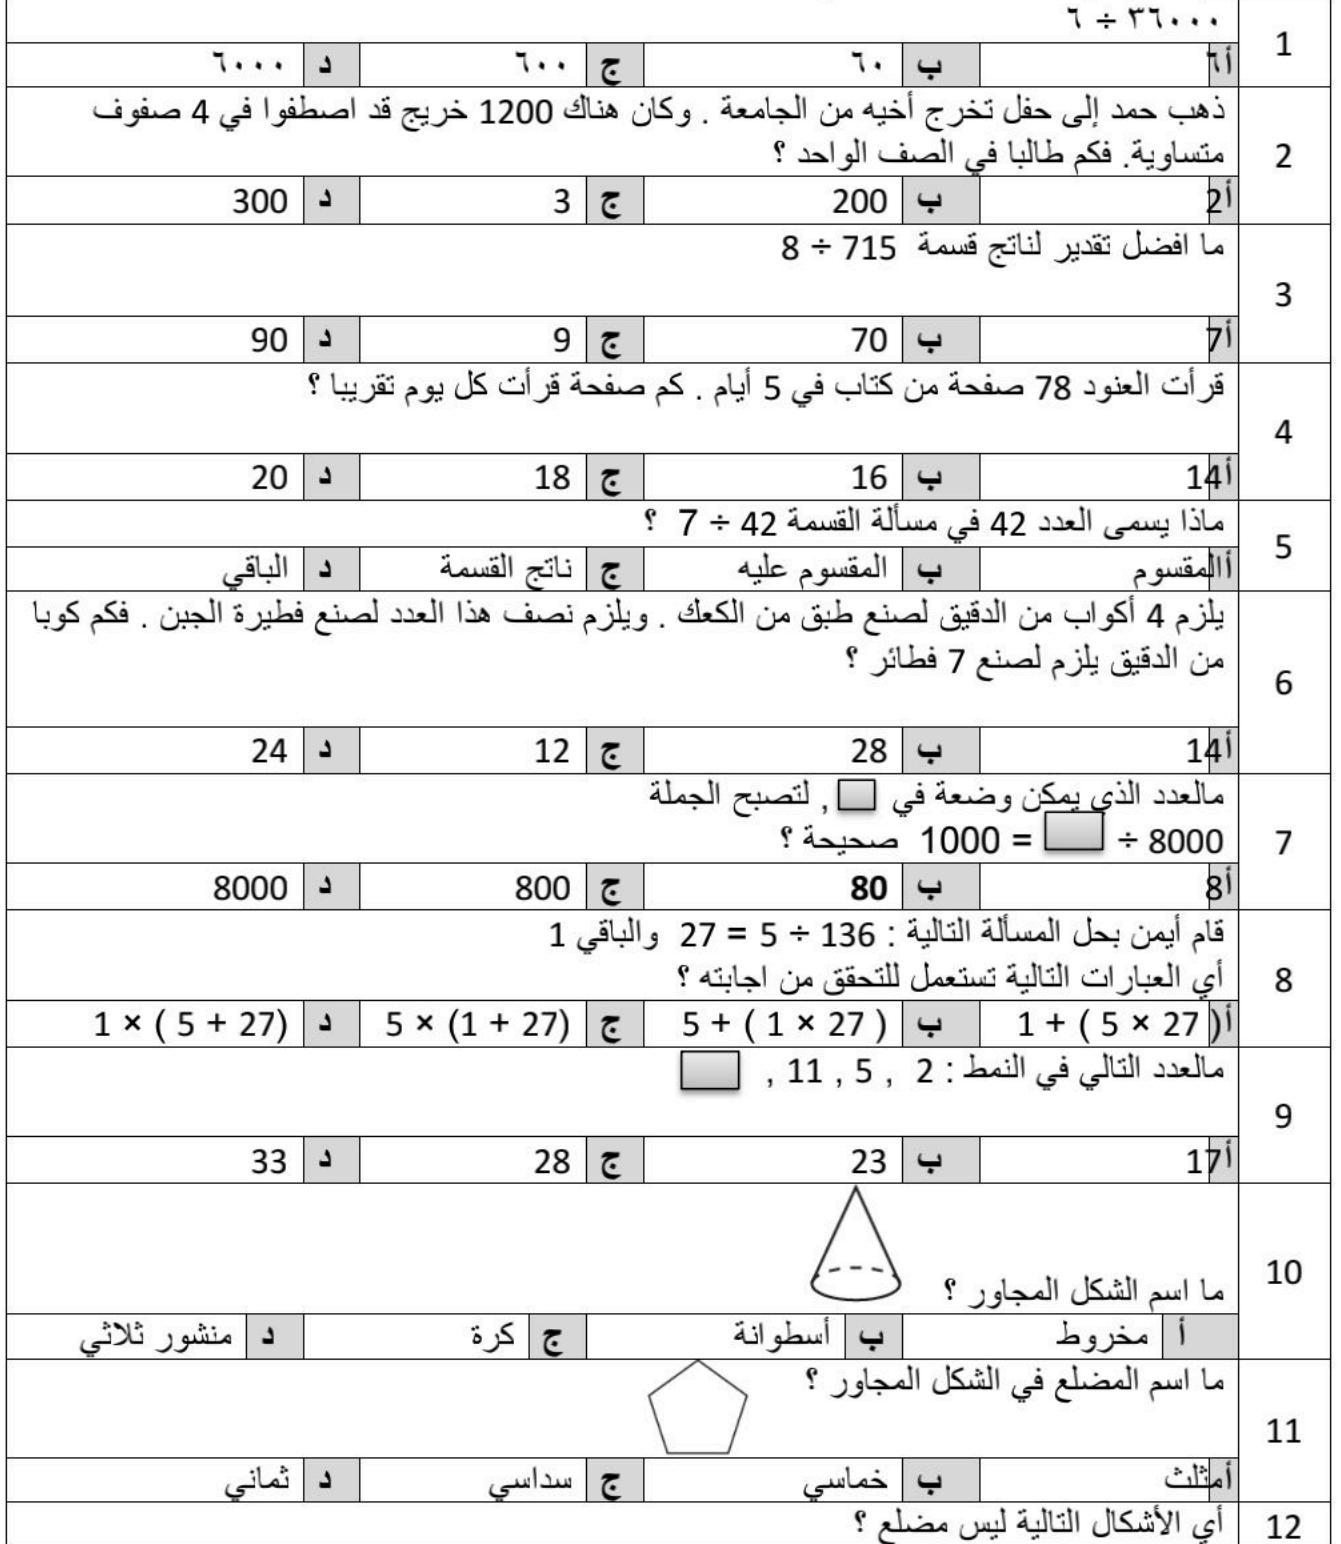 1
٣٦٠٠٠ ÷ ٦
أ ٦ ب ٦٠ ج ٦٠٠ د ٦٠٠٠
2
ذهب حمد إلى حفل تخرج أخيه من الجامعة . وكان هناك 1200 خريج قد اصطفوا في 4 صفوف
متساوية. فكم طالبا في الصف الواحد ؟
أ 2 ب 200 ج 3 د 300
3
ما افضل تقدير لناتج قسمة 715 ÷ 8
أ 7 ب 70 ج 9 د 90
4
قرأت العنود 78 صفحة من كتاب في 5 أيام . كم صفحة قرأت كل يوم تقريبا ؟
أ 14 ب 16 ج 18 د 20
5
ماذا يسمى العدد 42 في مسألة القسمة 42 ÷ 7 ؟
أ المقسوم ب المقسوم عليه ج ناتج القسمة د الباقي
6
يلزم 4 أكواب من الدقيق لصنع طبق من الكعك . ويلزم نصف هذا العدد لصنع فطيرة الجبن . فكم كوبا
من الدقيق يلزم لصنع 7 فطائر ؟
أ 14 ب 28 ج 12 د 24
7
مالعدد الذي يمكن وضعة في , لتصبح الجملة
8000 ÷ = 1000 صحيحة ؟
أ 8 ب 80 ج 800 د 8000
8
قام أيمن بحل المسألة التالية : 136 ÷ 5 = 27 والباقي 1
أي العبارات التالية تستعمل للتحقق من اجابته ؟
أ ( 27 × 5 ) + 1 ب ( 27 × 1 ) + 5 ج (27 + 1) × 5 د (27 + 5 ) × 1
9
مالعدد التالي في النمط : 2 , 5 , 11 ,
أ 17 ب 23 ج 28 د 33
10
ما اسم الشكل المجاور ؟
أ مخروط ب أسطوانة ج كرة د منشور ثلاثي
11
ما اسم المضلع في الشكل المجاور ؟
أ مثلث ب خماسي ج سداسي د ثماني
12
أي الأشكال التالية ليس مضلع ؟